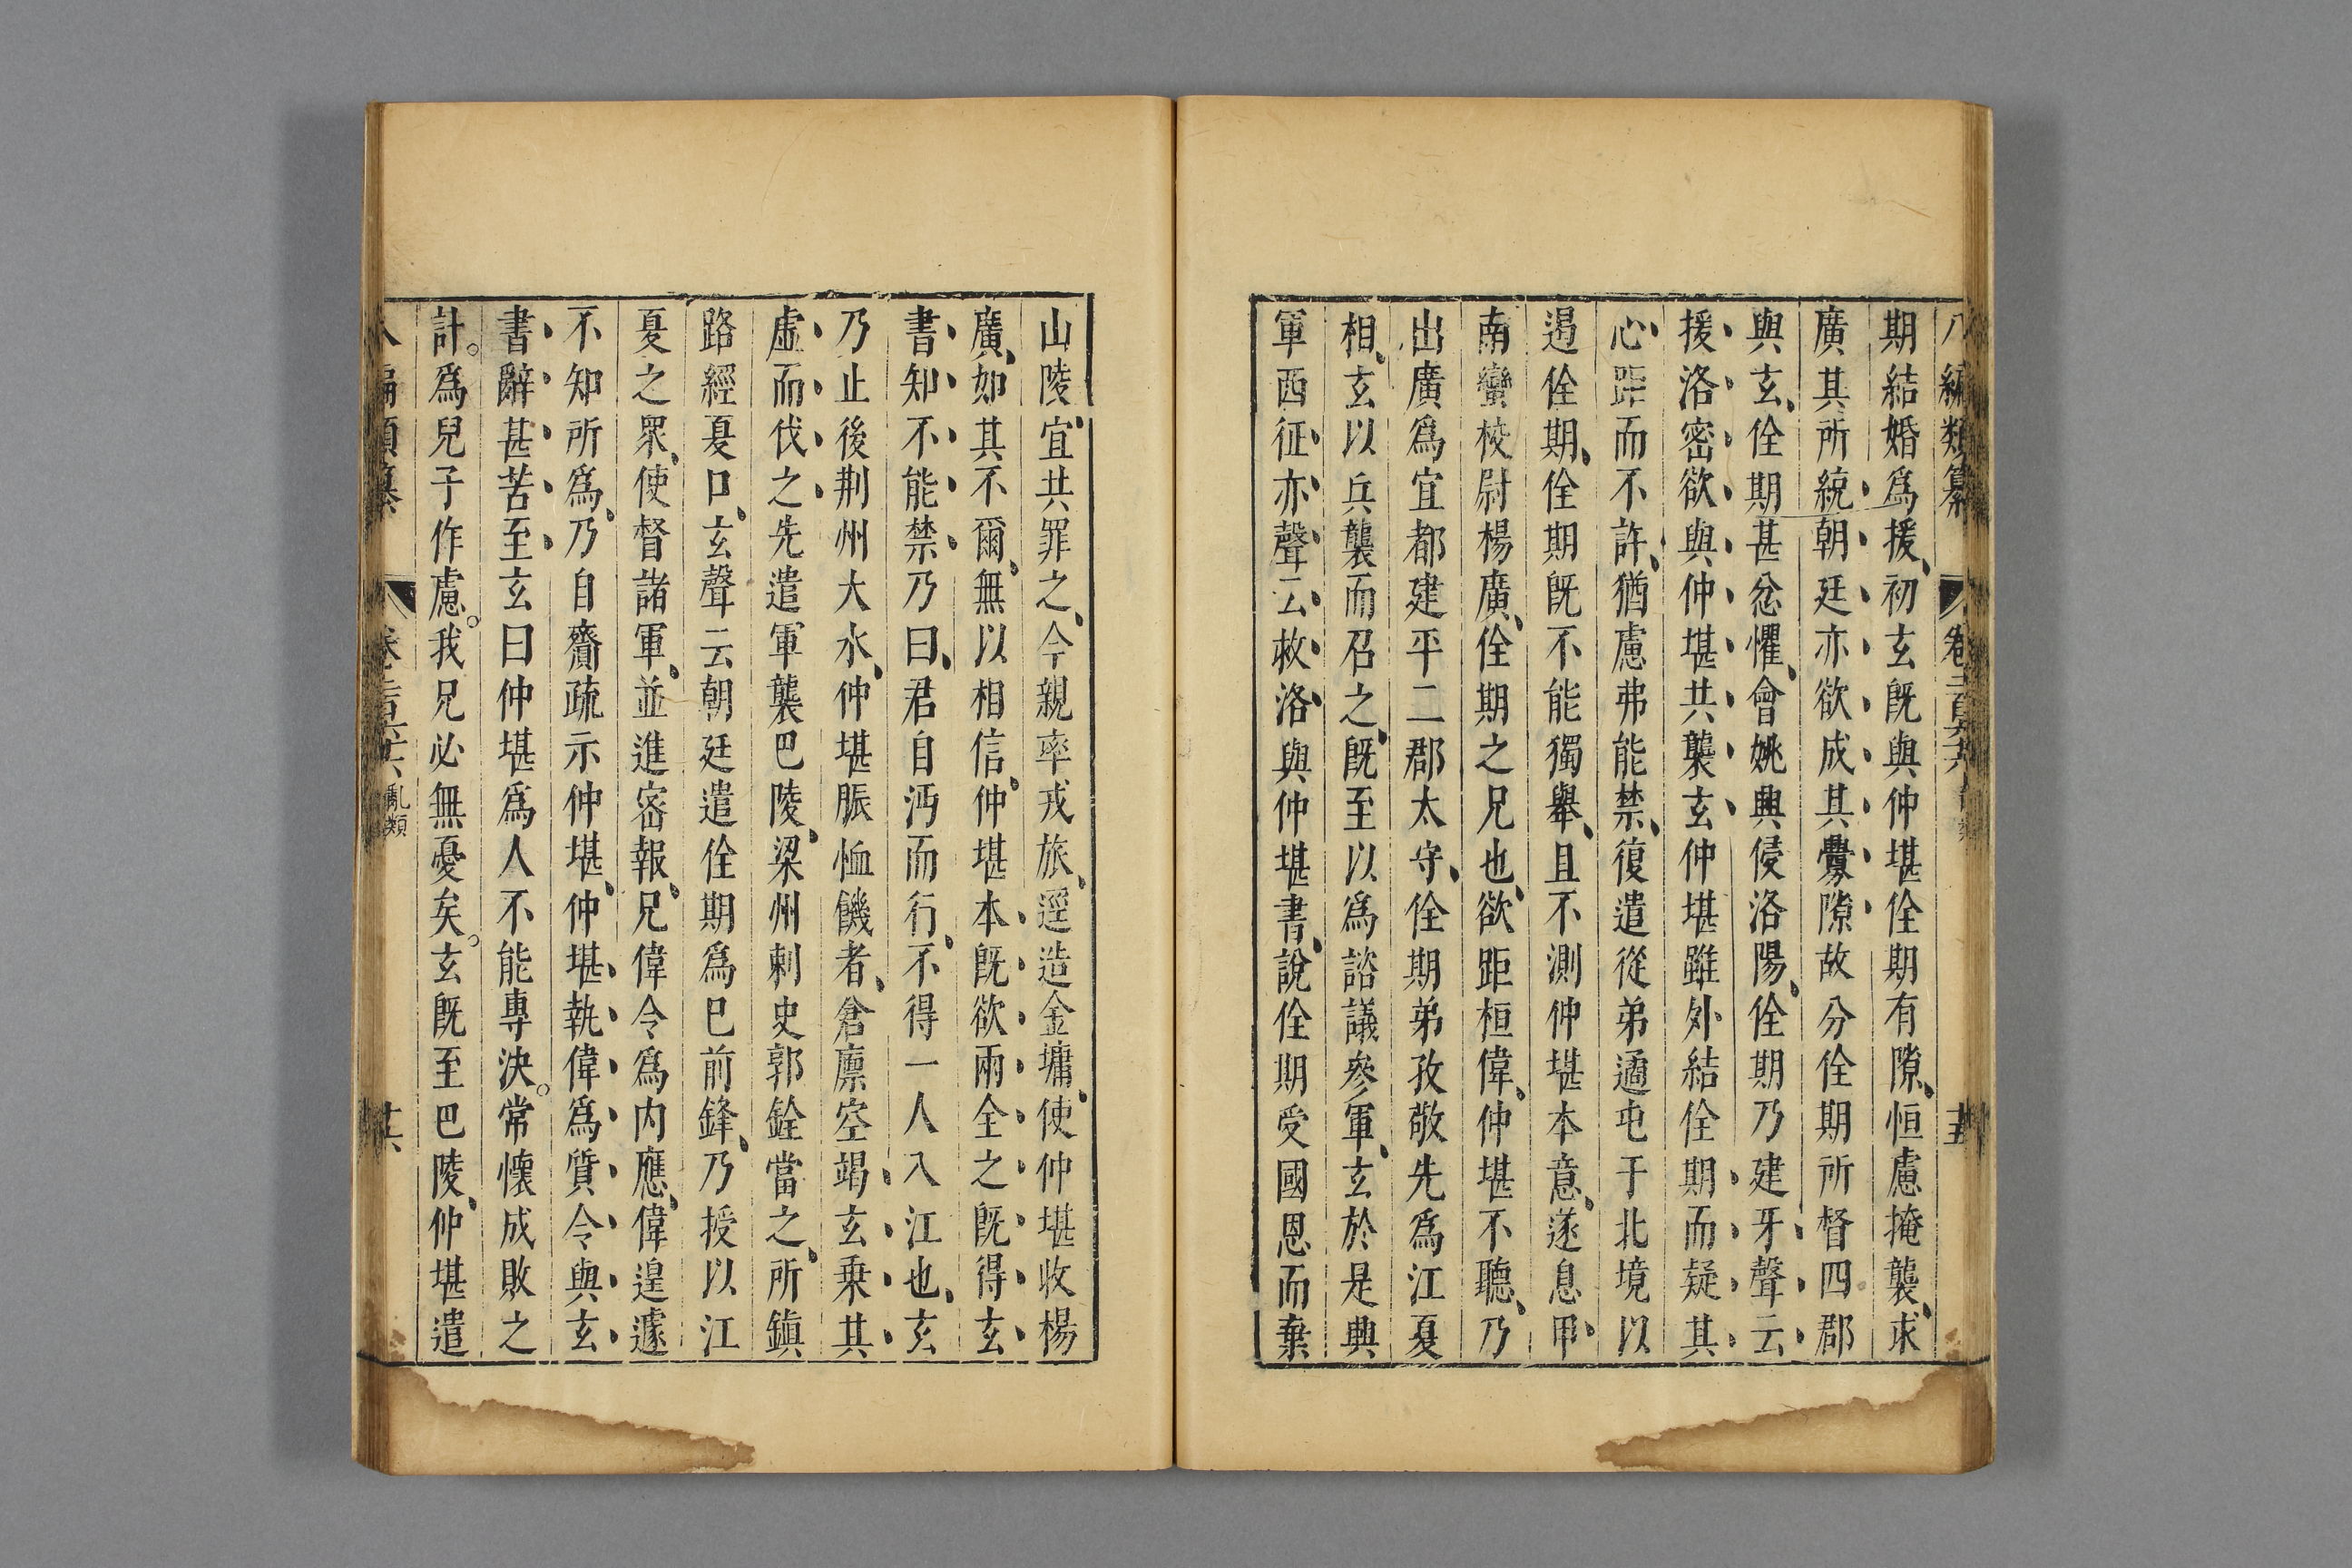 八編類纂 卷二百六六 十五
期結婚爲援初玄既與仲堪佺期有隙恒慮掩襲求
廣其所統朝廷亦欲成其釁隙故分佺期所督四郡
與玄佺期甚忿懼會姚興侵洛陽佺期乃建牙聲云
援洛密欲與仲堪共襲玄仲堪雖外結佺期而疑其
心距而不許猶慮弗能禁復遣從弟遹屯于北境以
遏佺期佺期既不能獨舉且不測仲堪本意遂息甲
南蠻校尉楊廣佺期之兄也欲距桓偉仲堪不聽乃
出廣爲宜都建平二郡太守佺期弟孜敬先爲江夏
相玄以兵襲而召之既至以爲諮議參軍玄於是興
軍西征亦聲云救洛與仲堪書說佺期受國恩而棄
山陵宜共罪之今親率戎旅逕造金墉使仲堪收楊
廣如其不爾無以相信仲堪本既欲兩全之既得玄
書知不能禁乃曰君自沔而行不得一人入江也玄
乃止後荆州大水仲堪賑恤饑者倉廪空竭玄乗其
虛而伐之先遣軍襲巴陵梁州刺史郭銓當之所鎮
路經夏口玄聲云朝廷遣佺期爲巳前鋒乃授以江
夏之眾使督諸軍並進密報兄偉令爲内應偉遑遽
不知所爲乃自齎疏示仲堪仲堪執偉爲質令與玄
書辭甚苦至玄曰仲堪爲人不能專決常懷成敗之
計爲兒子作慮我兄必無憂矣玄既至巴陵仲堪遣
八編類纂 卷二百六六 亂類 十六